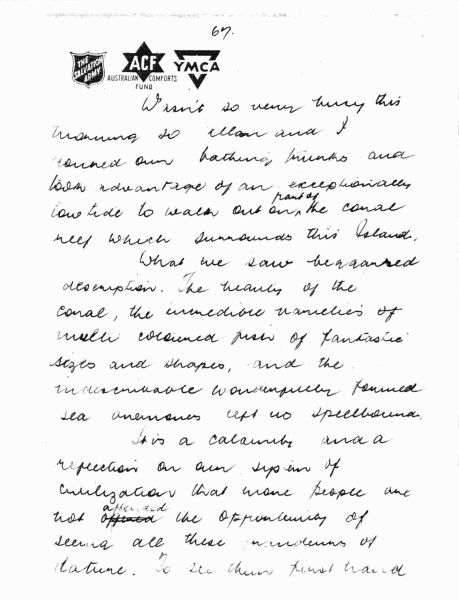 67.
THE SALVATION ARMY
ACF
AUSTRALIAN COMFORTS FUND
YMCA
Wasn't so very busy this
morning so Allan and I
donned our bathing trunks and
took advantage of an exceptionally
low tide to walk out on part of the coral
reef which surrounds this Island.
What we saw beggared
description. The beauty of the
coral, the incredible varieties of
multi coloured fish of fantastic
sizes and shapes, and the
indescribable wonderfully formed
sea anemones left us spellbound.
It is a calamity and a
reflection on our system of
civilization that more people are
not afforded the opportunity of
seeing all these wonders of
Nature. To see them first hand